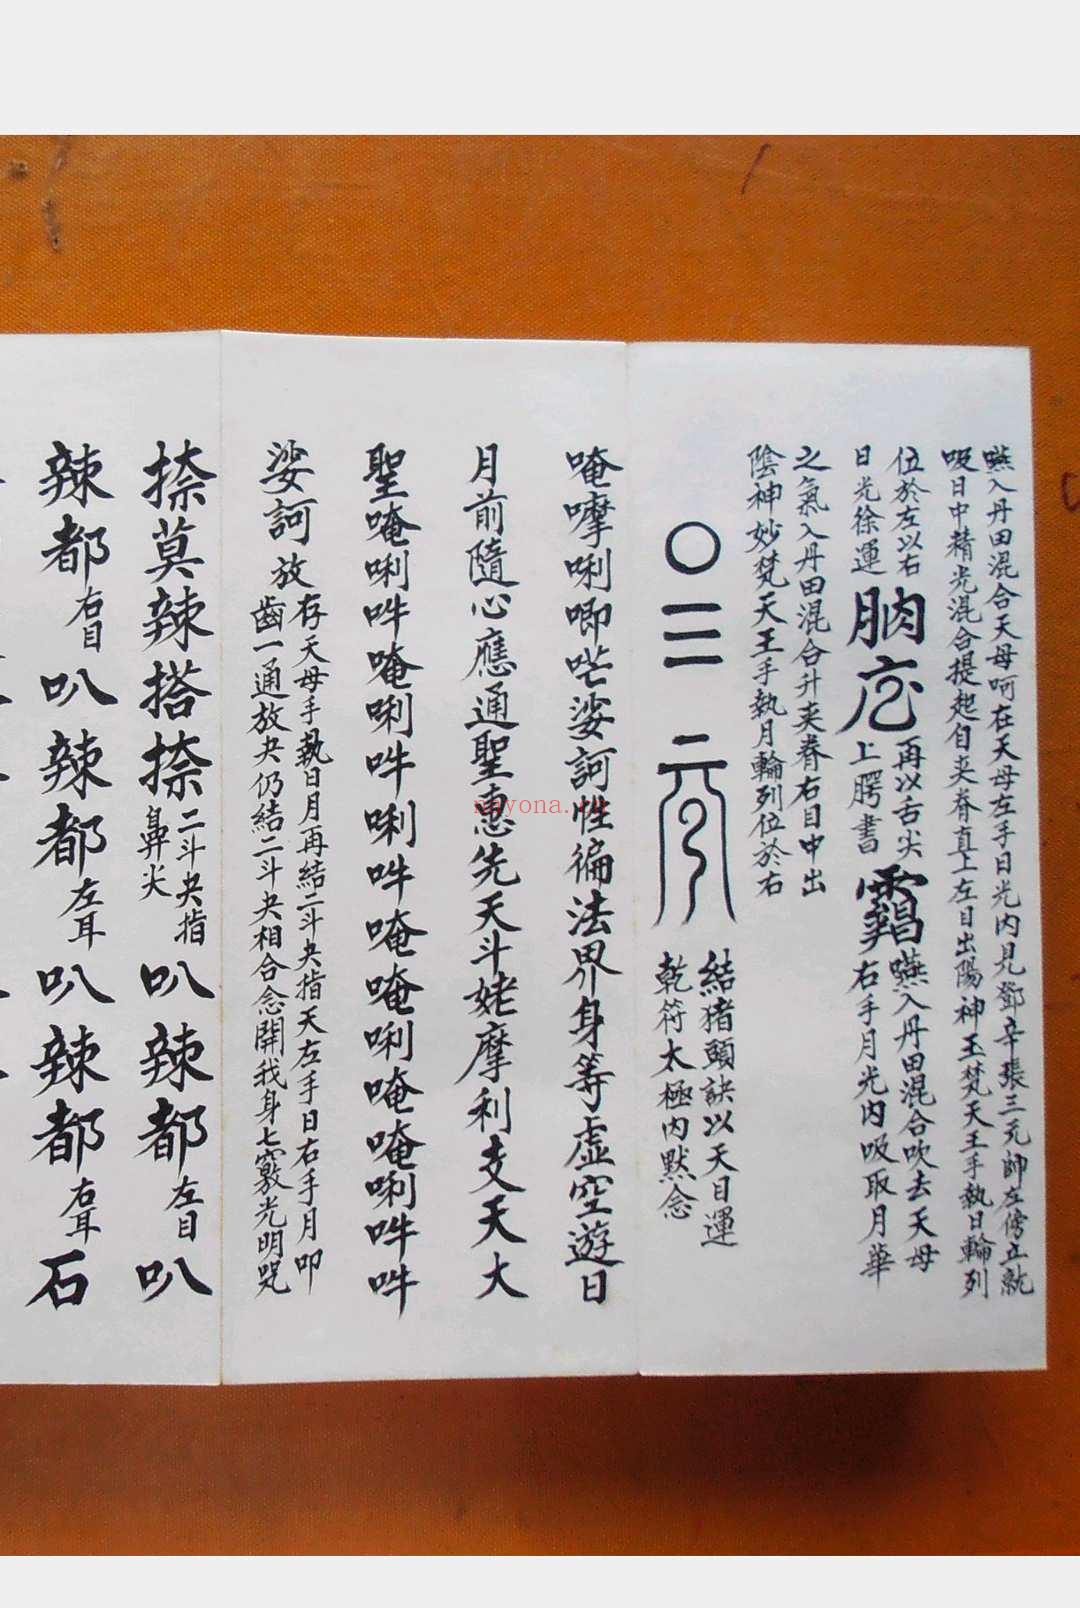 嚥入丹田混合天母呵在天母左手日光內見鄧辛張三元帥左傍立就
吸日中精光混合提起自夾脊直上左目出陽神玉梵天王手執日輪列
位於左以右
日光徐運
再以舌尖
上腭書
嚥入丹田混合吹去天母
右手月光內吸取月華
之氣入丹田混合升夾脊右目中出
陰神妙梵天王手執月輪列位於右
結猪頭訣以天目運
乾符太極內默念
唵摩唎唧𠵼娑訶性徧法界身等虛空遊日
月前隨心應通聖惠先天斗姥摩利支天大
聖唵唎吽唵唎吽唎吽唵唵唎唵唵唎吽吽
娑訶放
存天母手執日月再結二斗央指天左手日右手月叩
齒一通放央仍結二斗央相合念開我身七竅光明咒
捺莫辣搭捺
二斗央指
鼻尖
叭辣都
左目
叭
辣都
右目
叭辣都
左耳
叭辣都
右耳
石
nnyona.cn